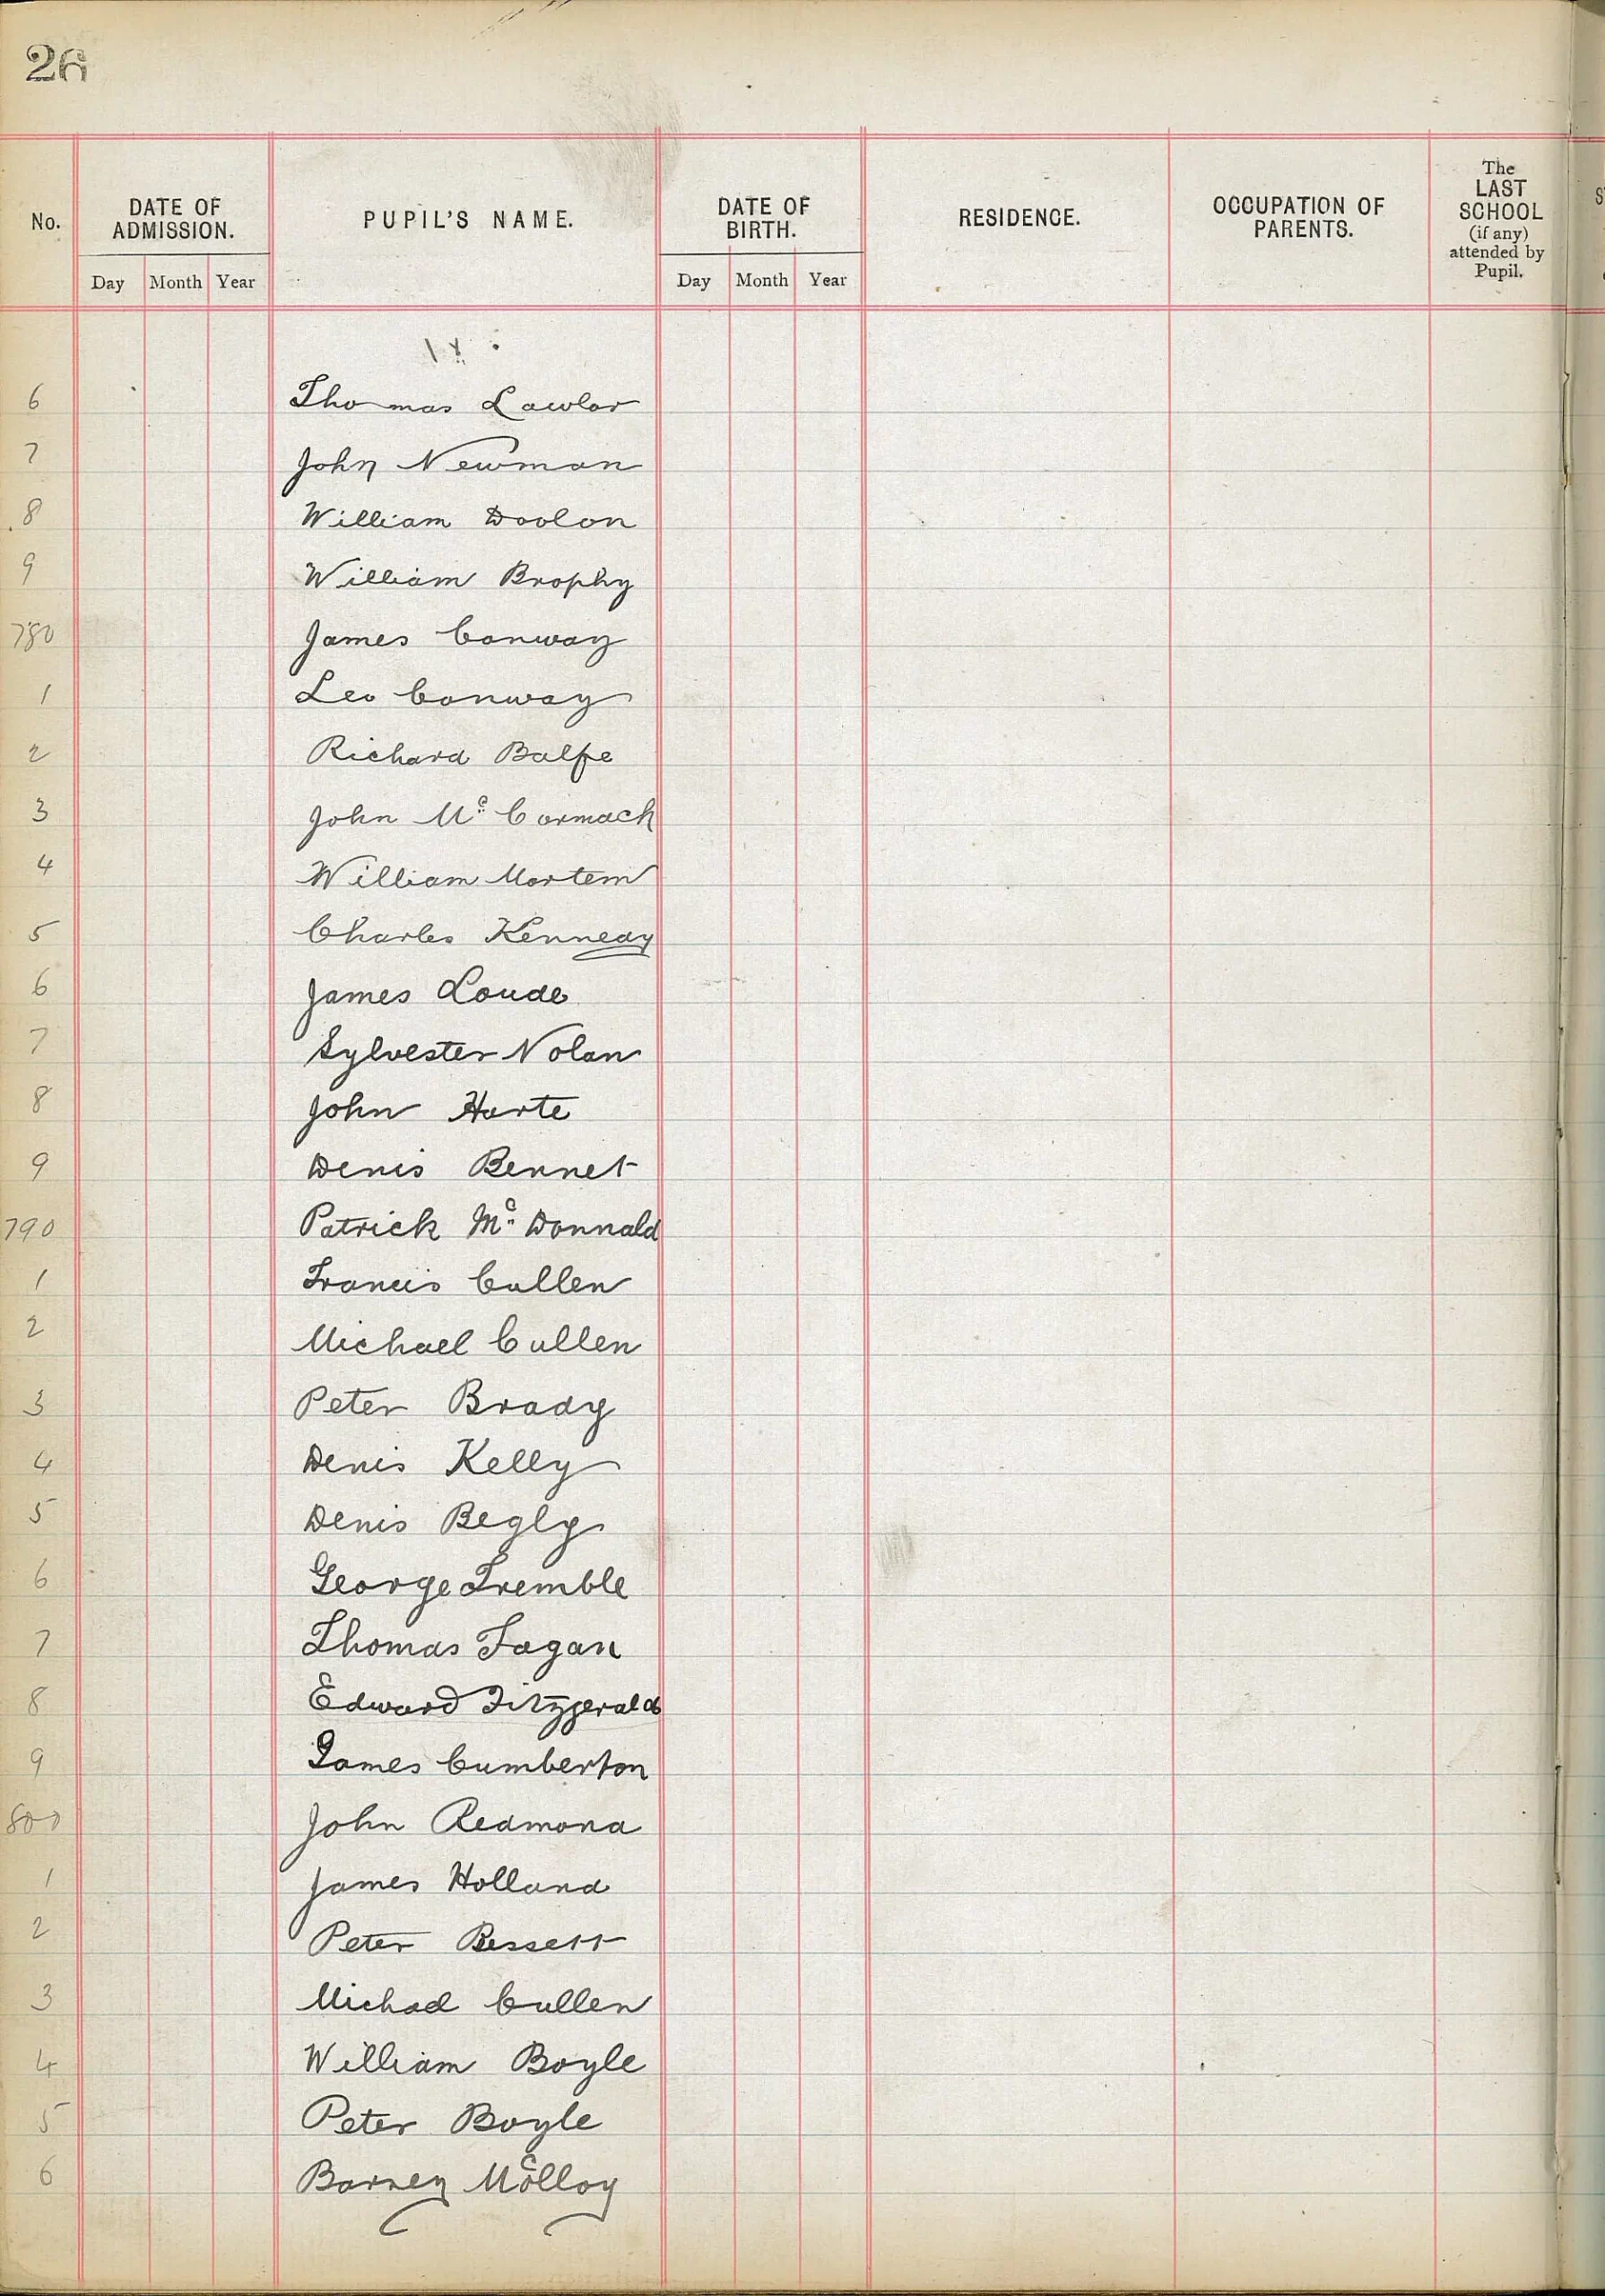 26
No. DATE OF ADMISSION. PUPIL'S NAME. DATE OF BIRTH. RESIDENCE. OCCUPATION OF PARENTS. The LAST SCHOOL (if any) attended by Pupil.
Day Month Year Day Month Year
6 Thomas Lawlor
7 John Newman
8 William Doolan
9 William Brophy
780 James Conway
1 Leo Conway
2 Richard Balfe
3 John Mc Cormack
4 William Martem
5 Charles Kennedy
6 James Loude
7 Sylvester Nolan
8 John Harte
9 Denis Bennet
790 Patrick Mc Donnald
1 Francis Cullen
2 Michael Cullen
3 Peter Brady
4 Denis Kelly
5 Denis Begly
6 George Tremble
7 Thomas Fagan
8 Edward Fitzgerald
9 James Cumberton
800 John Redmond
1 James Holland
2 Peter Bessett
3 Michael Cullen
4 William Boyle
5 Peter Boyle
6 Barney Molloy